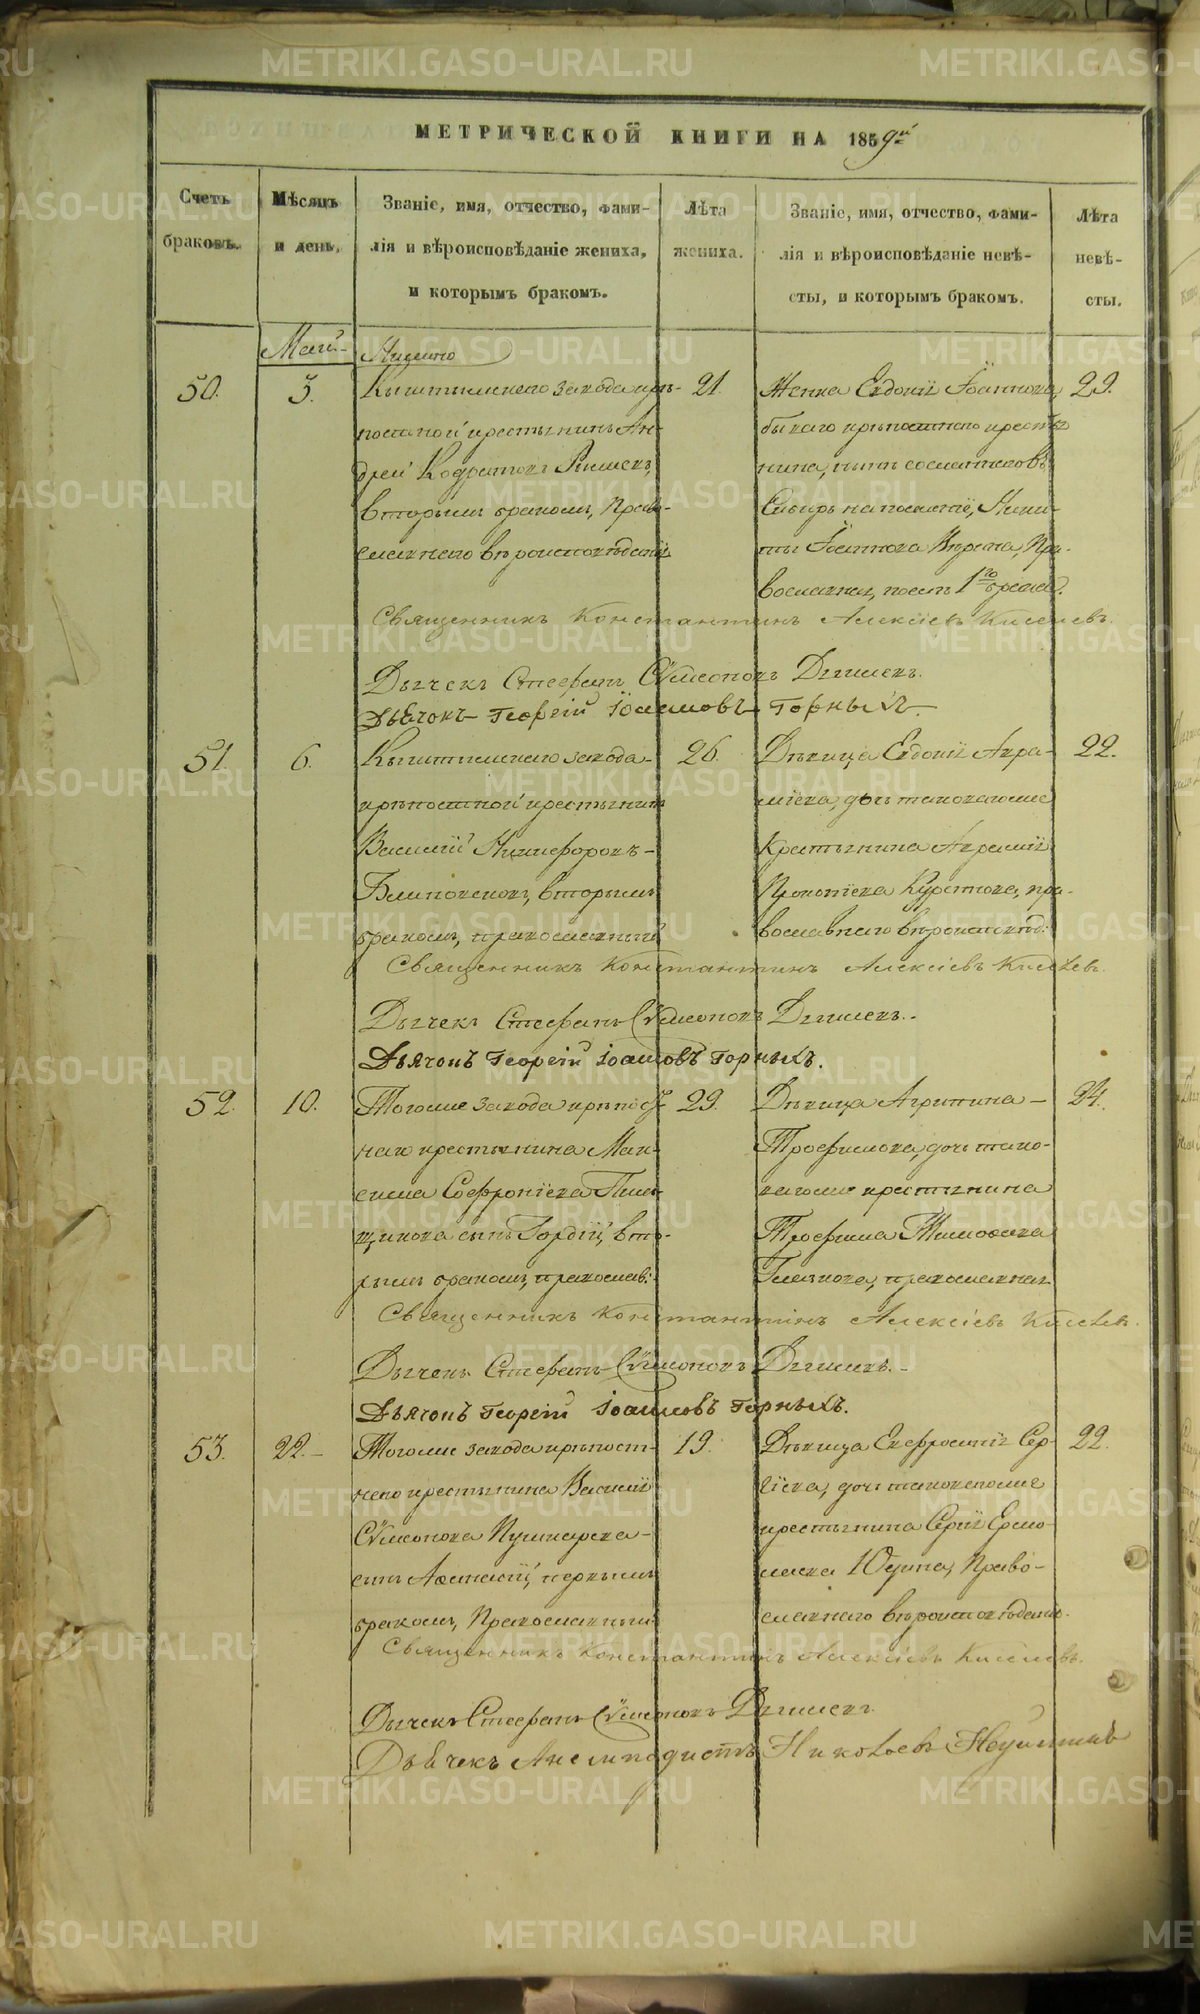 МЕТРИЧЕСКОЙ КНИГИ НА 1859й
Счетъ браковъ.
Мѣсяцъ и день.
Званіе, имя, отчество, фами-
лія и вѣроисповѣданіе жениха,
и которымъ бракомъ.
Лѣта жениха.
Званіе, имя, отчество, фами-
лія и вѣроисповѣданіе невѣ-
сты, и которымъ бракомъ.
Лѣта невѣ-
сты.
Май
50.
Кыштымскаго завода крѣ-
постной крестьянинъ Ан-
дрей Кодратовъ
вторымъ бракомъ, Право-
славнаго вѣроисповѣданія
21.
Женка Евдокія Іоаннова,
бывшаго крѣпостнаго кресть
нина, нынѣ сосланнаго въ
Сибирь на поселеніе, Ники-
ты Іоаннова Пра-
вославная, послѣ 1го брака.
29.
Священникъ Константинъ Алексіевъ Киселевъ.
Дьячекъ Стефанъ Сѵмеоновъ
Дьячокъ Георгій Іоанновъ Горныхъ.
51.
6.
Кыштымскаго завода
крѣпостной крестьянинъ
Василій Никифоровъ
вторымъ
бракомъ, православный
26.
Дѣвица Евдокія Авра-
міева, дочь таковагоже
Крестьянина Аврамія
Прокопіева пра-
вославнаго вѣроисповѣд:
22.
Священникъ Константинъ Алексіевъ Киселевъ.
Дьячекъ Стефанъ Сѵмеоновъ
Дьячокъ Георгій Іоанновъ Горныхъ.
52.
10.
Тогоже завода крѣпост-
наго крестьянина Мак-
сима Софроніева
сынъ Гордій, вто-
рымъ бракомъ, православ:
29.
Дѣвица Агрипина
Трофимова, дочь тако-
вагоже крестьянина
Трофима Тимоѳеева
православная
24.
Священникъ Константинъ Алексіевъ Киселевъ.
Дьячекъ Стефанъ Сѵмеоновъ
Дьячокъ Георгій Іоанновъ Горныхъ.
53.
22.
Тогоже завода крѣпост-
наго крестьянина Василія
Сѵмеонова Пушкарева
сынъ Аѳанасій, первымъ
бракомъ, Православный
19.
Дѣвица Евфросинія Сер-
гіева, дочь таковагоже
крестьянина Сергія Ермо-
лаева Юдина, Право-
славнаго вѣроисповѣданія.
22.
Священникъ Константинъ Алексіевъ Киселевъ.
Дьячекъ Стефанъ Сѵмеоновъ
Дьячекъ Николаевъ
METRIKI.GASO-URAL.RU